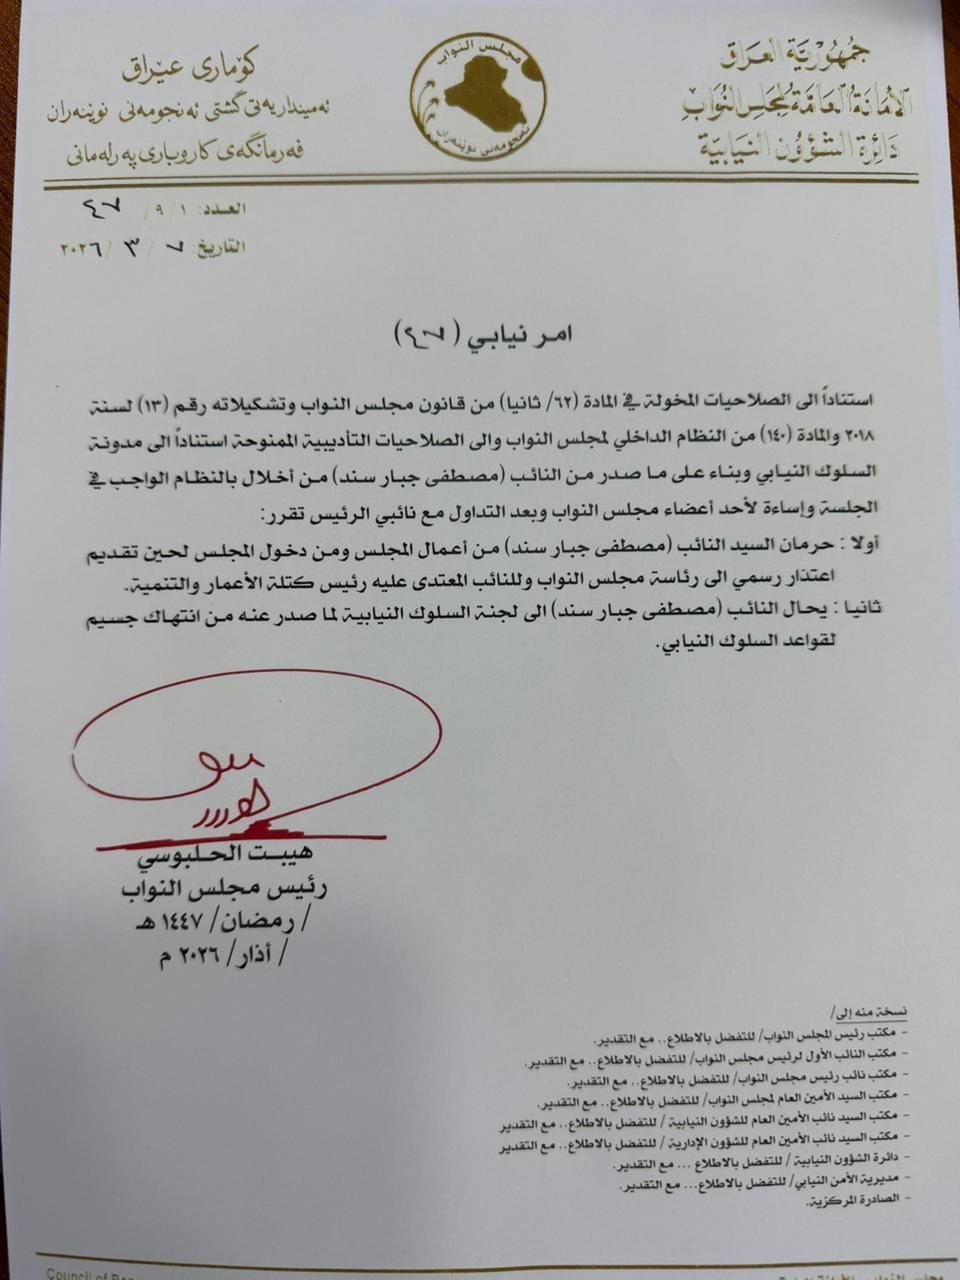 جمهورية العراق
الأمانة العامة لمجلس النواب
دائرة الشؤون النيابية
مجلس النواب
ئەنجومەنی نوێنەران
كۆماری عێراق
ئەمینداریەتی گشتی ئەنجومەنی نوێنەران
فەرمانگەی کاروباری پەرلەمانی
العدد: ١ / ٩ / ٤٧
التاريخ: ٧ / ٣ / ٢٠٢٦
امر نيابي (٤٧)
استناداً الى الصلاحيات المخولة في المادة (٦٢/ ثانيا) من قانون مجلس النواب وتشكيلاته رقم (١٣) لسنة
٢٠١٨ والمادة (١٤٠) من النظام الداخلي لمجلس النواب والى الصلاحيات التأديبية الممنوحة استناداً الى مدونة
السلوك النيابي وبناء على ما صدر من النائب (مصطفى جبار سند) من أخلال بالنظام الواجب في
الجلسة وإساءة لأحد أعضاء مجلس النواب وبعد التداول مع نائبي الرئيس تقرر:
أولا : حرمان السيد النائب (مصطفى جبار سند) من أعمال المجلس ومن دخول المجلس لحين تقديم
اعتذار رسمي الى رئاسة مجلس النواب وللنائب المعتدى عليه رئيس كتلة الأعمار والتنمية.
ثانيا : يحال النائب (مصطفى جبار سند) الى لجنة السلوك النيابية لما صدر عنه من انتهاك جسيم
لقواعد السلوك النيابي.
هيبت الحلبوسي
رئيس مجلس النواب
/ رمضان/ ١٤٤٧ هـ
/ أذار/ ٢٠٢٦ م
نسخة منه إلى/
- مكتب رئيس المجلس النواب/ للتفضل بالاطلاع.. مع التقدير.
- مكتب النائب الأول لرئيس مجلس النواب/ للتفضل بالاطلاع.. مع التقدير.
- مكتب نائب رئيس مجلس النواب/ للتفضل بالاطلاع.. مع التقدير.
- مكتب السيد الأمين العام لمجلس النواب/ للتفضل بالاطلاع.. مع التقدير.
- مكتب السيد نائب الأمين العام للشؤون النيابية / للتفضل بالاطلاع.. مع التقدير
- مكتب السيد نائب الأمين العام للشؤون الإدارية / للتفضل بالاطلاع.. مع التقدير
- دائرة الشؤون النيابية / للتفضل بالاطلاع ... مع التقدير.
- مديرية الأمن النيابي/ للتفضل بالاطلاع... مع التقدير.
- الصادرة المركزية.
Council of